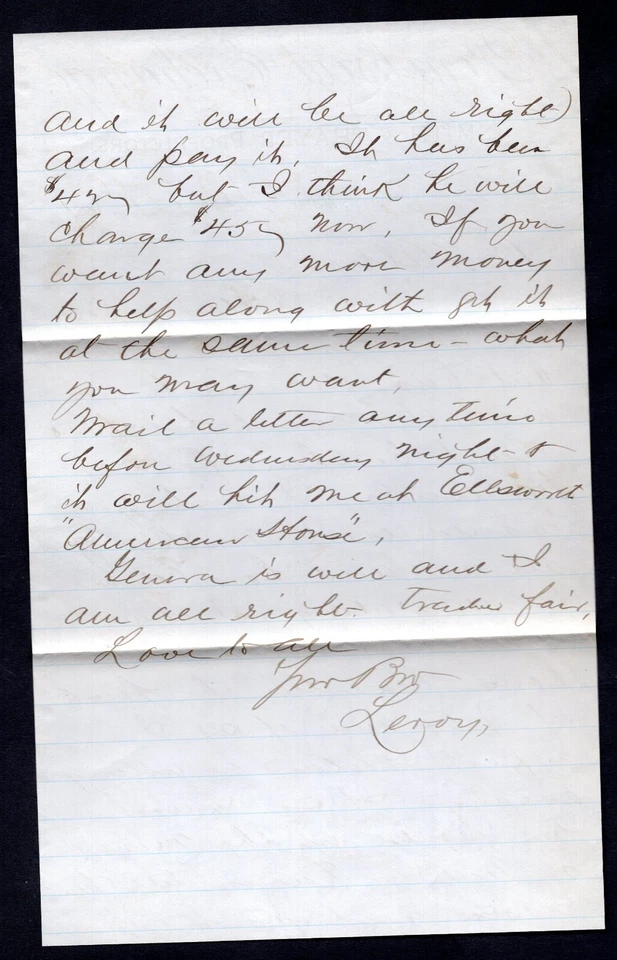 and it will be all right)
and pay it. It has been
but I think he will
charge $45 now. If you
want any more money
to help along with get it
at the same time - what
you may want.
Mail a letter any time
before Wednesday night &
it will hit me at Ellsworth
"American House".
Genora is well and I
am all right. Trade fair.
Love to all
Your Bro
Leroy